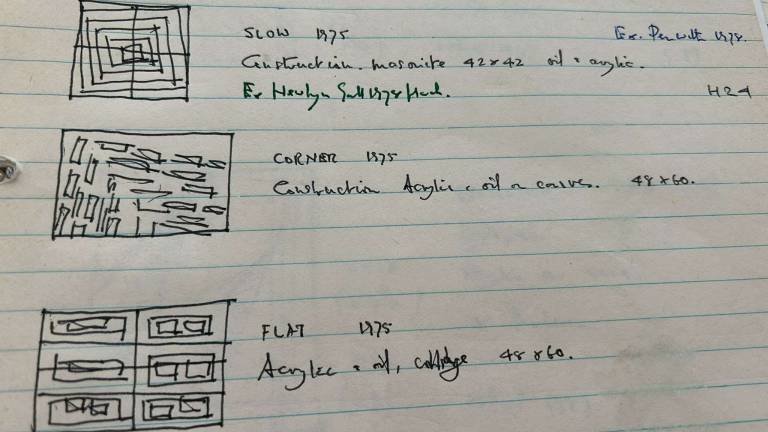 SLOW 1975 Ex. Penwith 1978.
Construction. masonite 42x42 oil + acrylic.
Ex Newlyn Gall 1978 H24
CORNER 1975
Construction Acrylic + oil on canvas. 48x60.
FLAT 1975
Acrylic + oil, collage 48x60.